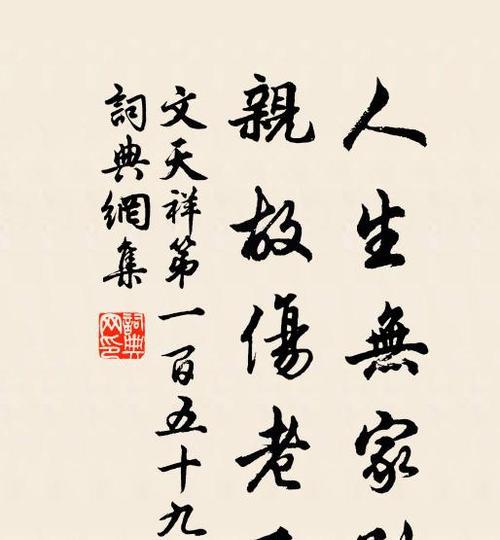 人生無家
親故傷老
文天祥第一百五十九
詞典網集
詞典网印